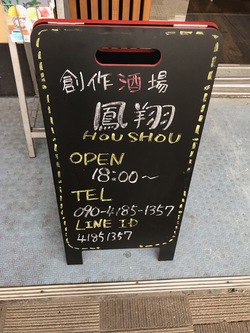 創作酒場
鳳翔
HOUSHOU
OPEN
18:00〜
TEL
090-4185-1357
LINE ID
41851357